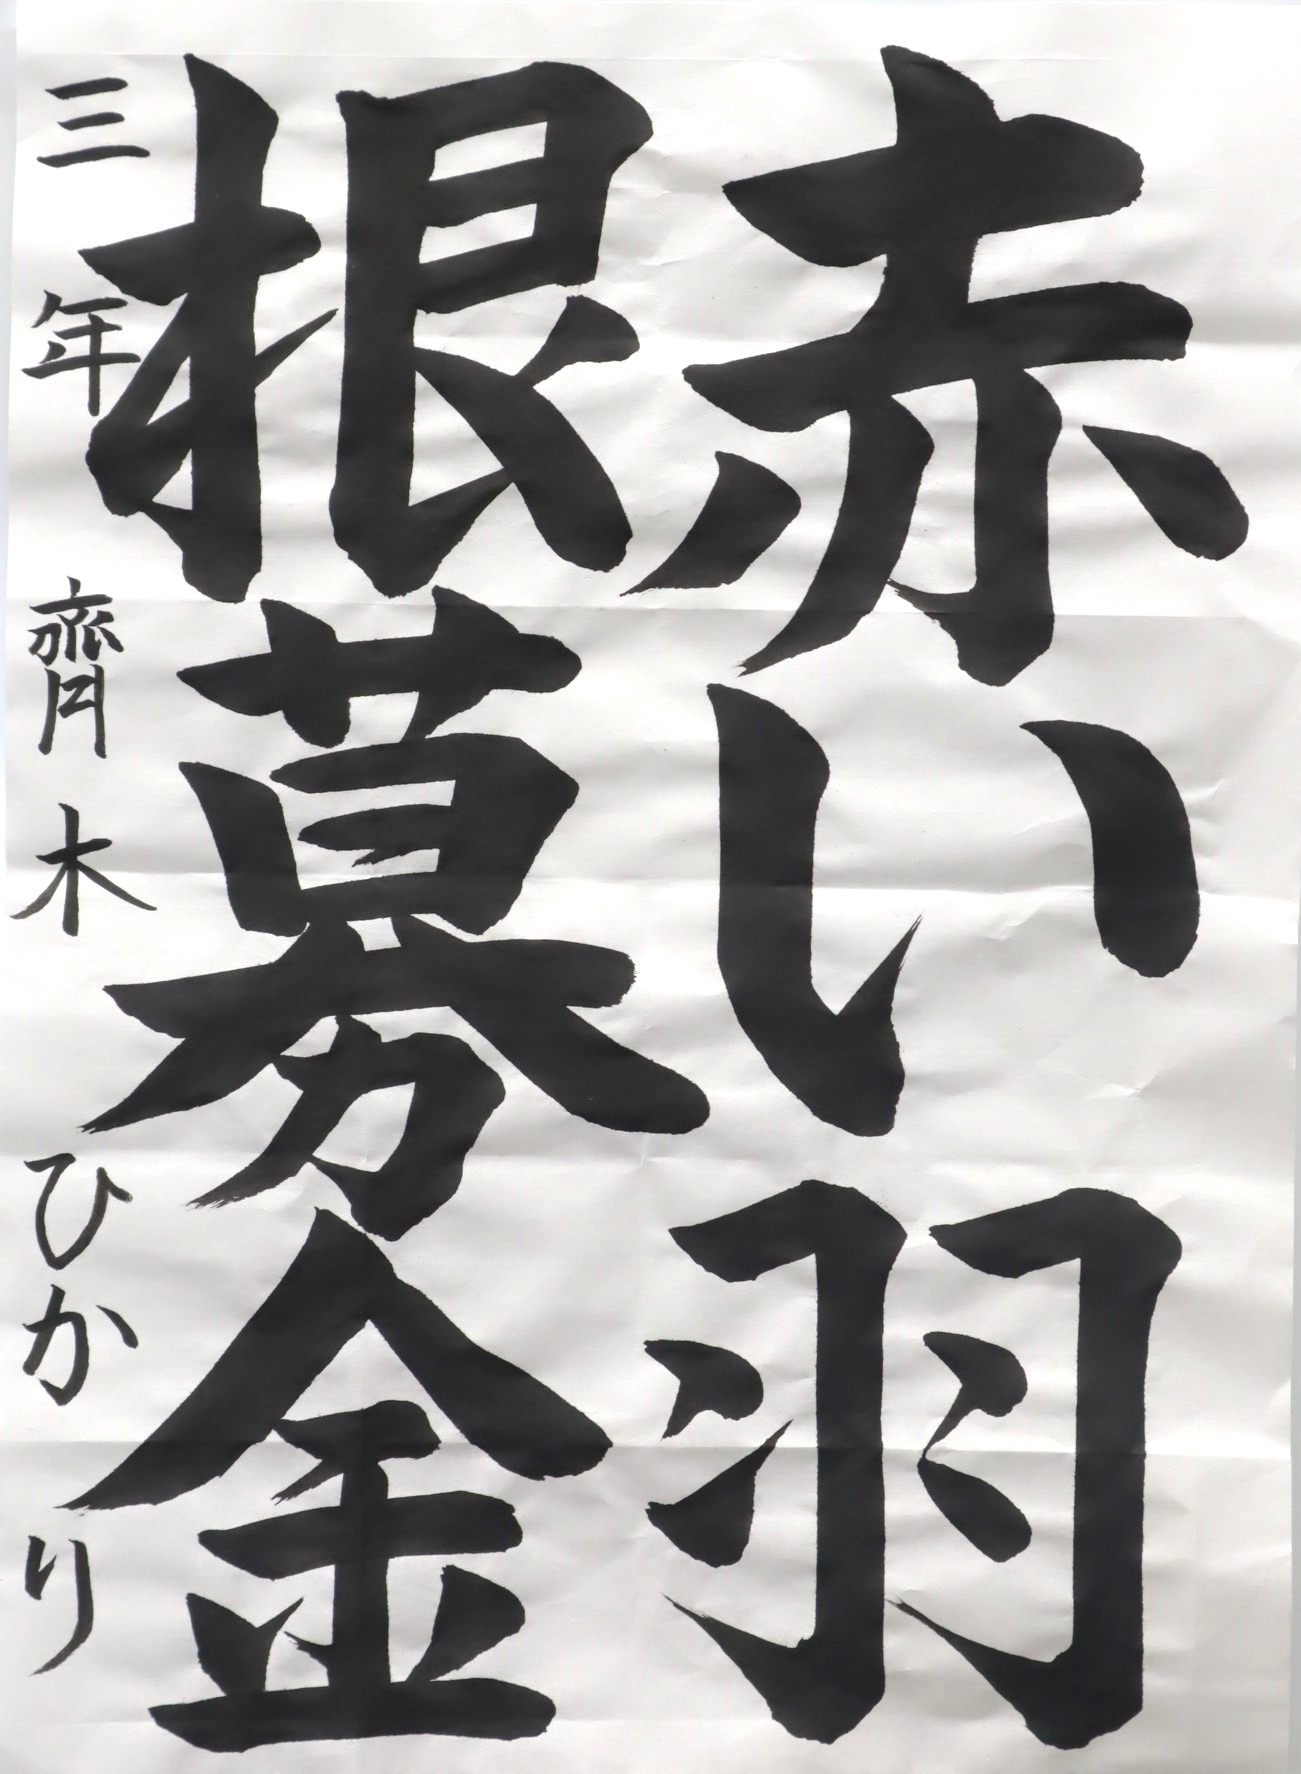 赤い羽
根募金
三年 齊木 ひかり